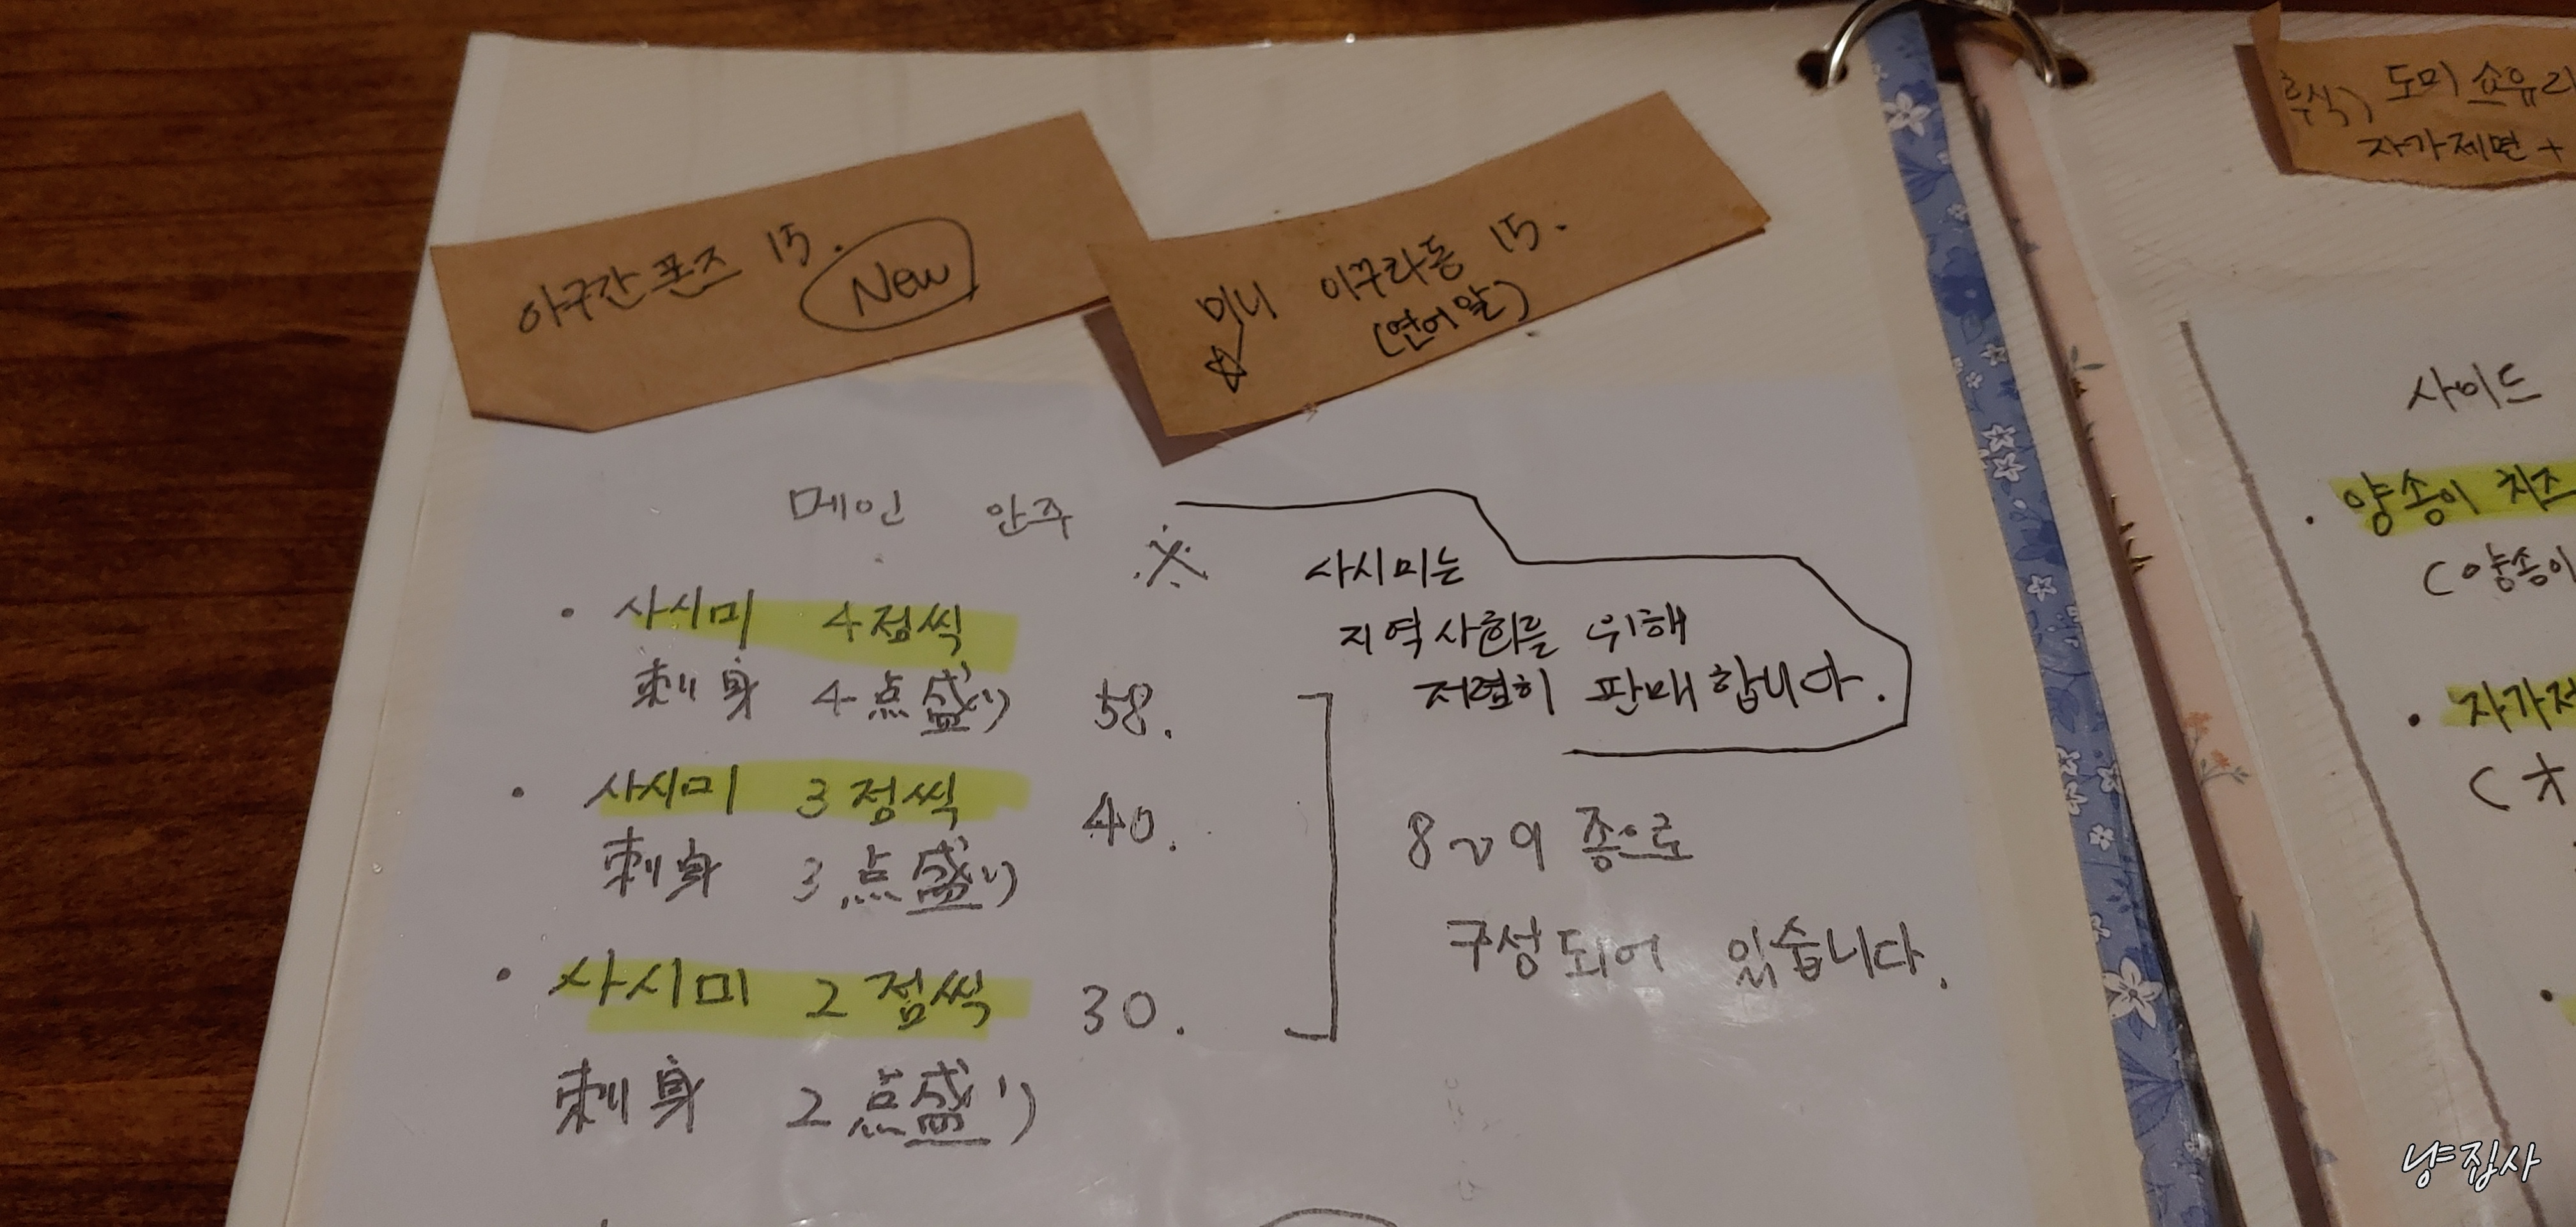 아구간폰즈 15.
New
미니 이꾸라동 15.
(연어알)
후식) 도미 쇼유라
자가제면 +
메인 안주
※ 사시미는
지역사회를 위해
저렴히 판매합니다.
• 사시미 4점씩
刺身 4点盛り 58.
• 사시미 3점씩
刺身 3点盛り 40.
• 사시미 2점씩 30.
刺身 2点盛り
8~9 종으로
구성되어 있습니다.
사이드
• 양송이 치즈
(양송이
• 자가제
냥집사